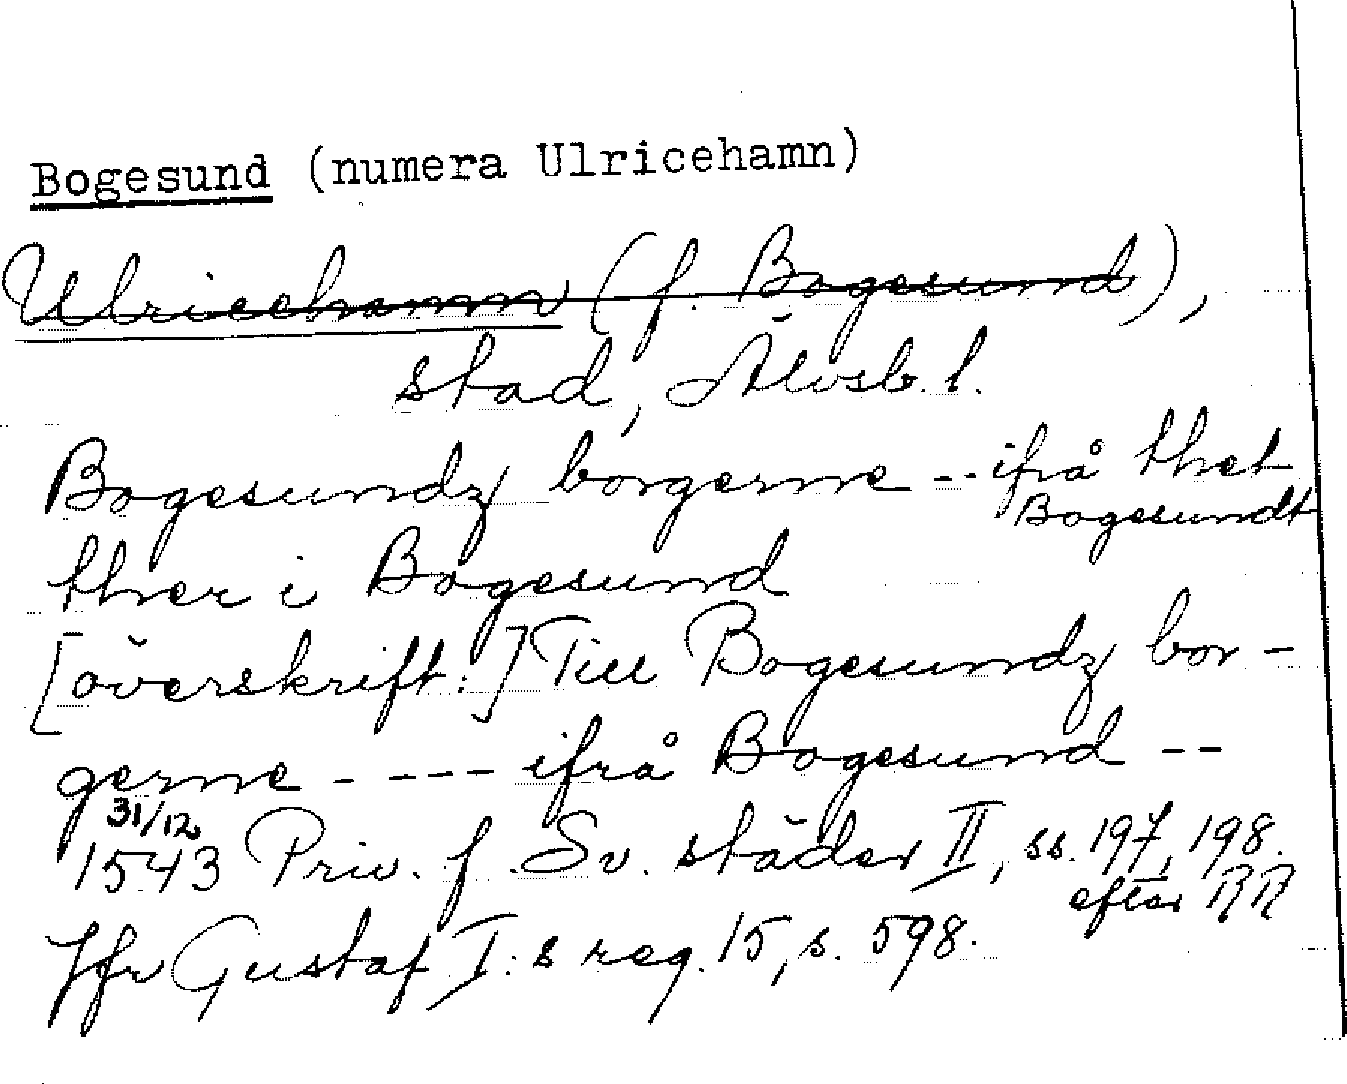 Bogesund (numera Ulricehamn)
Ulricehamn (f. Bogesund),
stad, Älvsb. l.
Bogesundz borgerne -- ifrå thet
Bogesundt
ther i Bogesund
[överskrift:] Till Bogesundz bor-
gerne ---- ifrå Bogesund --
31/12
1543 Priv. f. Sv. städer II, ss. 197, 198.
efter RR
Jfr Gustaf I:s reg. 15, s. 598.